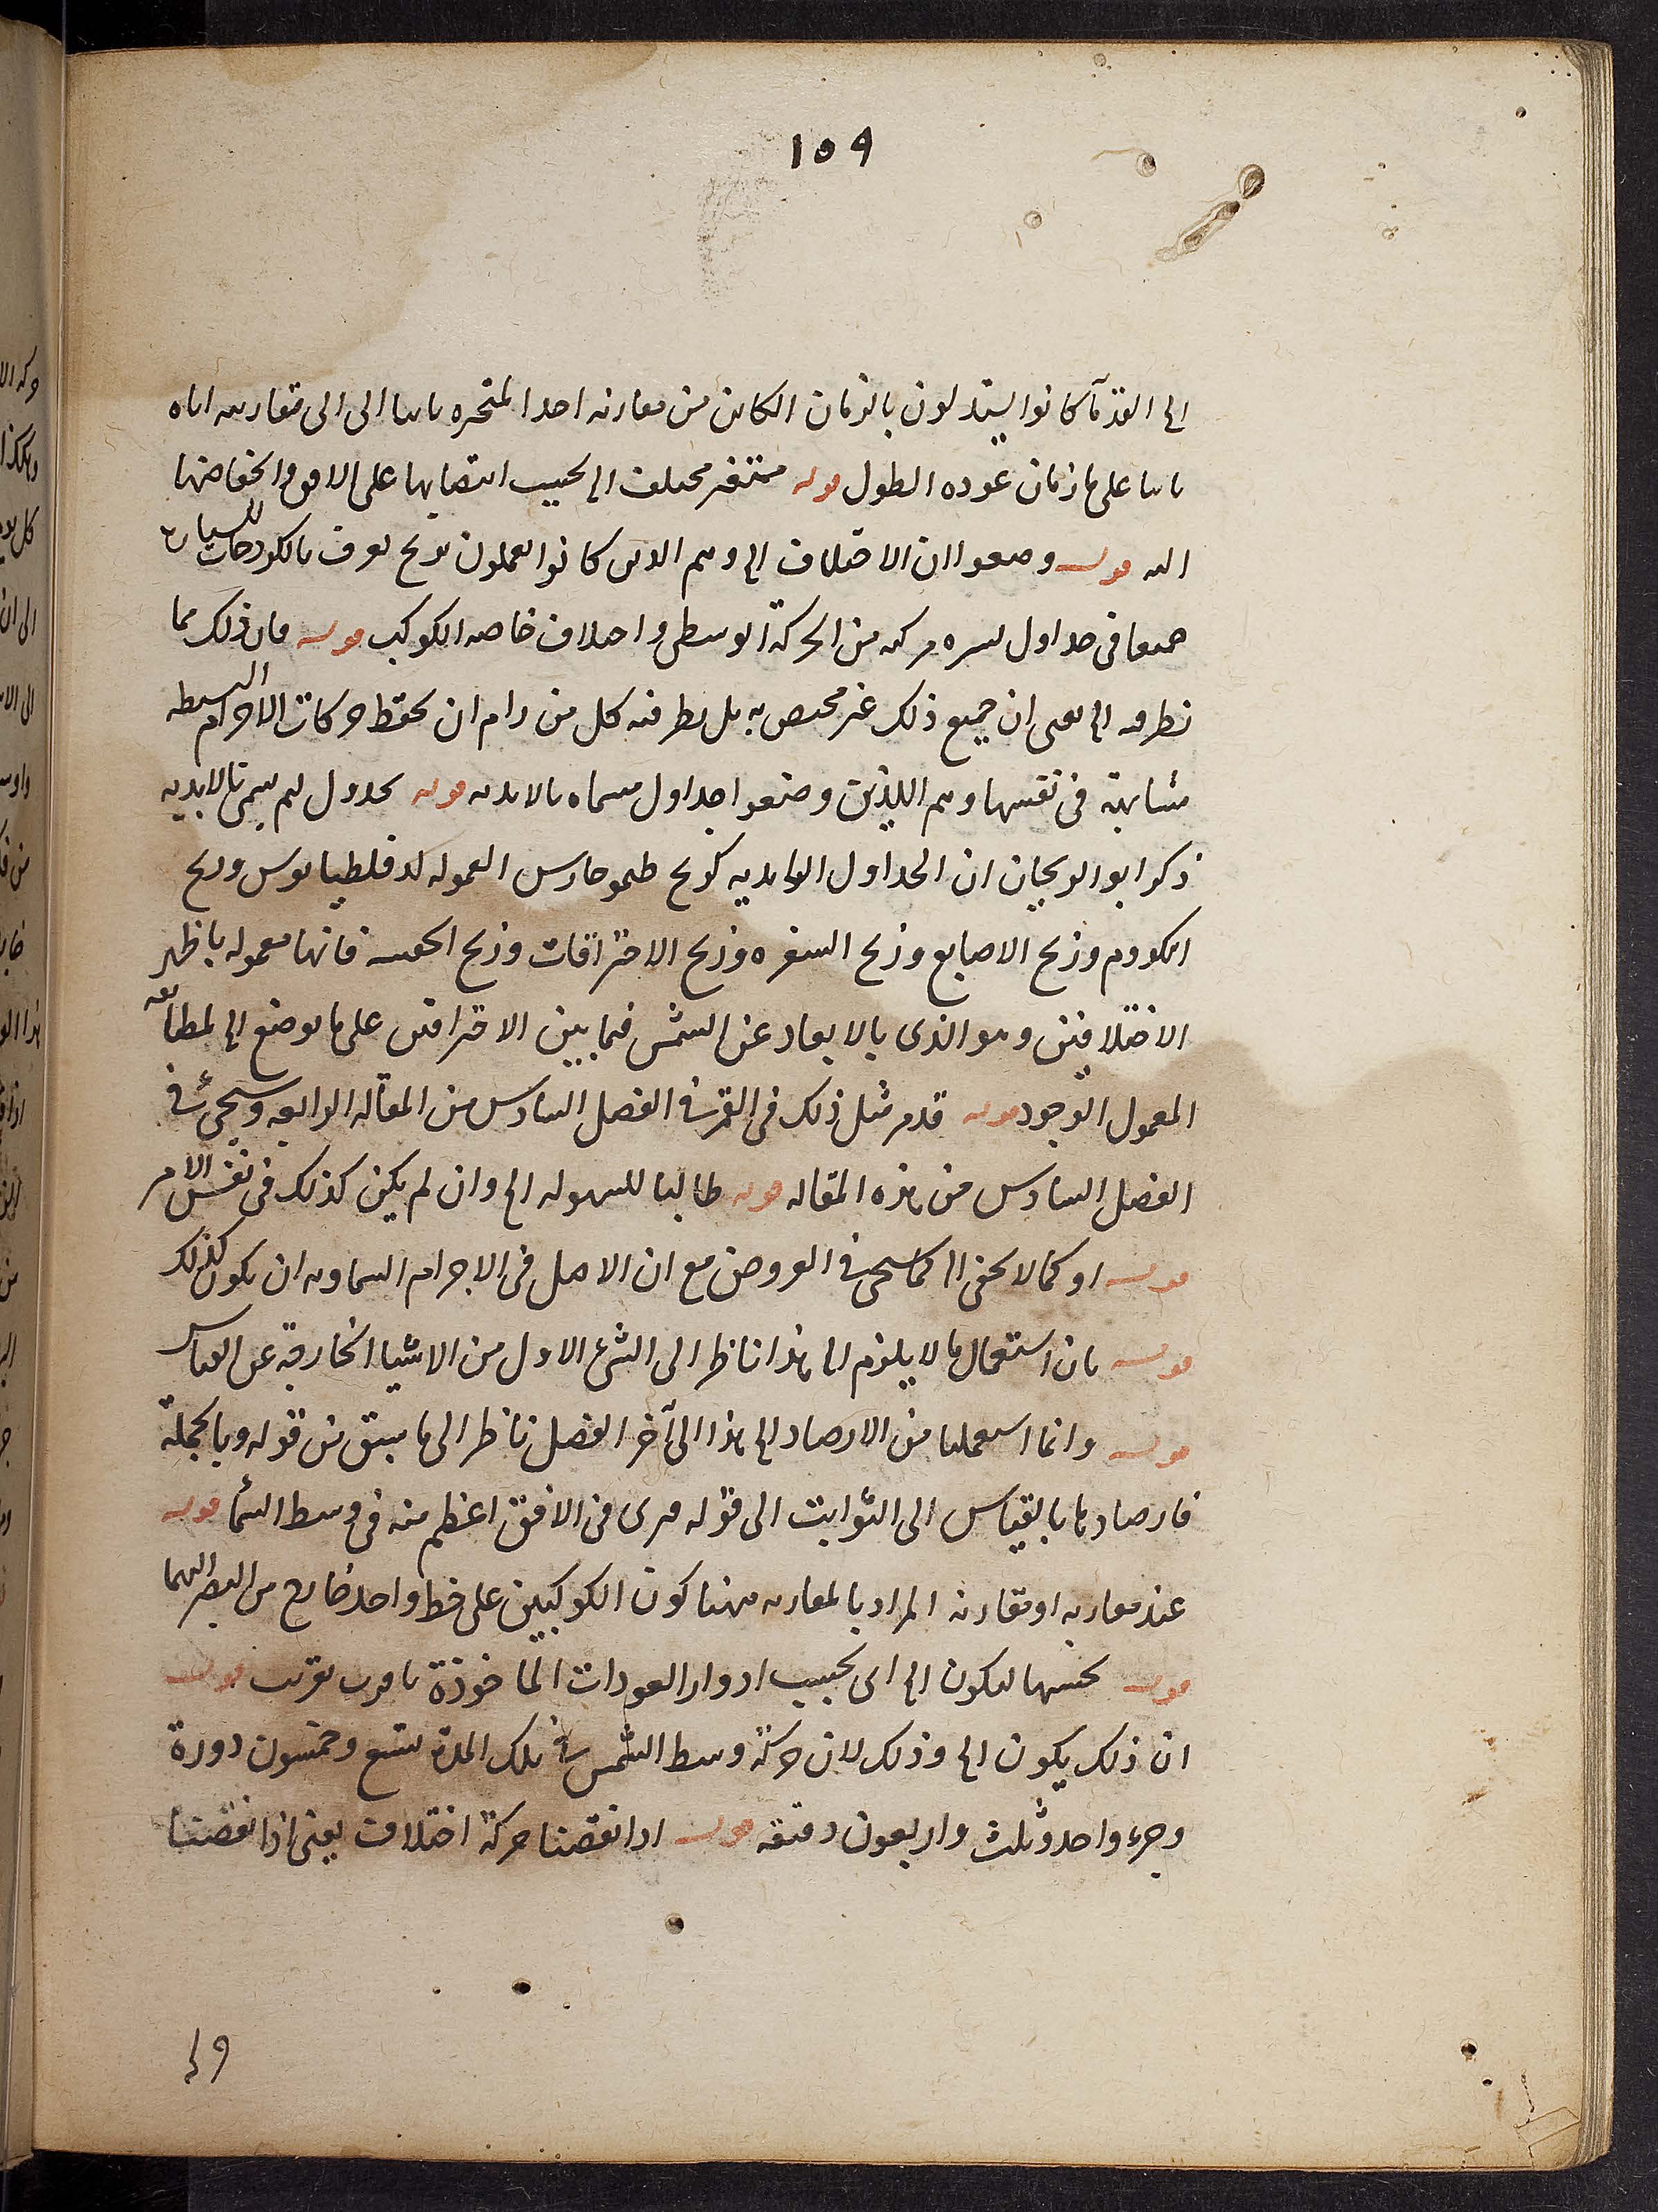 ١٥٩
الى القدمآ كانوا يستدلون بالزمان الكائن من مقارنه احد المتحيره باىىا الى الى مقارىىه اىاه
ىاىىا على ما زمان عوده الطول قوله متفنن مختلف الى بحسب انتصابها على الافق وانخفاضها
اليه قوله وضعوا ان الاختلاف الى وهم الذين كانوا يعملون بزيج يعرف بالكردجات للسيارة
جميعا فى جداول ىسىره مركبه من الحركة الوسطى واختلاف خاصه الكوكب قوله فان ذلك مما
نظر فيه الى يعنى ان جميع ذلك غير مختص به بل نظر فيه كل من رام ان يحفظ حركات الاجرام البسيطه
متشابهة فى نفسها وهم اللذين وضعوا جداول مسماه بالابديه قوله بجدول لهم يسمى بالابديه
ذكر ابو الريحان ان الجداول الابديه كزيج طيموخارس المعموله لدقلطيانوس وزيج
الكدوم وزيج الاصابع وزيج السفره وزيج الاحتراقات وزيج الخمسه فانها معموله باظهر
الاختلافين وهو الذى بالابعاد عن الشمس فيما بين الاحتراقين على ما يوضع الى لمطابقه
المعمول الموجود قوله قد مر مثل ذلك فى القمر فى الفصل السادس من المقاله الرابعه وسيجئ فى
الفصل السادس من هذه المقاله قوله طالبا للسهوله الى وان لم يكن كذلك فى نفس الامر
قوله او كما لا يخفى الى كما سيجى فى العروض مع ان الاصل فى الاجرام السماويه ان يكون كذلك
قوله بان استعمال ما لا يلزم الى هذا ناظر الى الشئ الاول من الاشيا الخارجة عن القياس
قوله وانما استعملنا من الارصاد الى هذا الى آخر الفصل ناظر الى ما سبق من قوله وبالجملة
فارصادها بالقياس الى الثوابت الى قوله فيرى فى الافق اعظم منه فى وسط السمأ قوله
عند مقاربه او مقارنه المراد بالمقارنه ههنا كون الكوكبين على خط واحد خارج من البصر اليهما
قوله بحسبها ليكون الى اى بحسب ادوار العودات المأخوذة باقرب تقريب قوله
ان ذلك يكون الى وذلك لان حركة وسط الشمس فى تلك المدة تسع وخمسون دورة
وجزء واحد وثلث واربعون دقيقه قوله اذا نقصنا حركة اختلافه يعنى اذا نقصنا